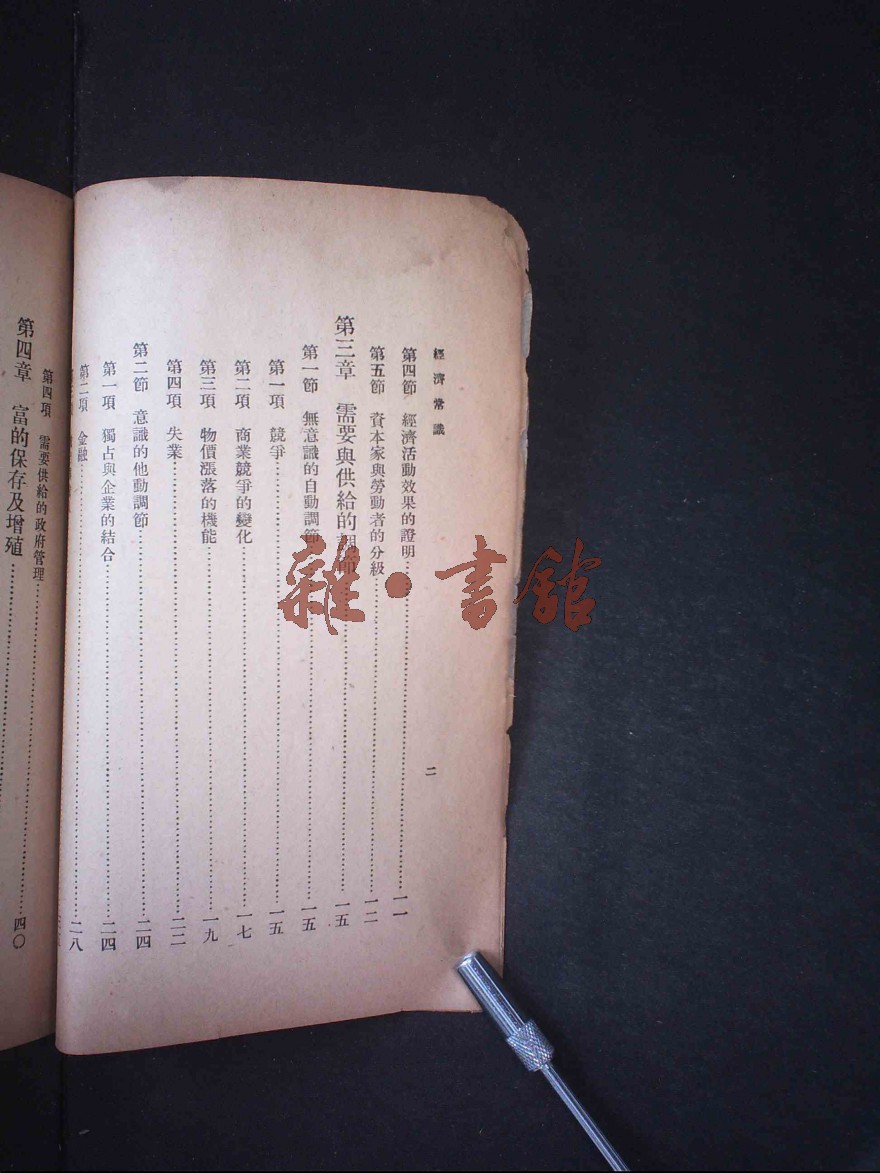 經濟常識
第四節 經濟活動效果的證明……一一
第五節 資本家與勞動者的分級……一二
第三章 需要與供給的調節……一五
第一節 無意識的自動調節……一五
第一項 競爭……一五
第二項 商業競爭的變化……一七
第三項 物價漲落的機能……一九
第四項 失業……二二
第二節 意識的他動調節……二四
第一項 獨占與企業的結合……二四
第二項 金融……二八
二
第四項 需要供給的政府管理……
第四章 富的保存及增殖……四〇
雜·書館